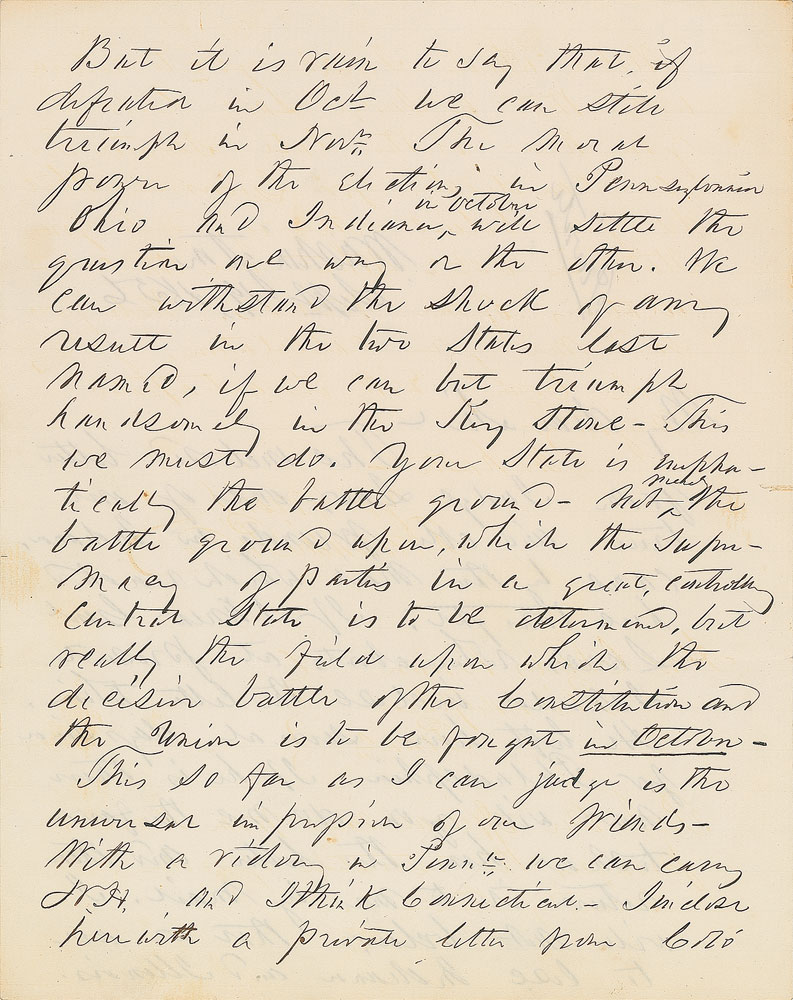 But it is vain to say that, if
defeated in Oct. we can still
triumph in Novr. The moral
power of the election, in Pennsylvania
Ohio and Indiana, in October will settle the
question one way or the other. We
can withstand the shock of any
result in the two States last
named, if we can but triumph
handsomely in the Key Stone - This
we must do. Your State is empha-
tically the battle ground - not merely the
battle ground upon, which the supre-
macy of parties in a great, controlling
Central State is to be determined, but
really the field upon which the
decisive battle of the Constitution and
the Union is to be fought in October -
This so far as I can judge is the
universal impression of our friends -
With a victory in Penna. we can carry
N.H. and I think Connecticut. - I inclose
herewith a private letter from Colo